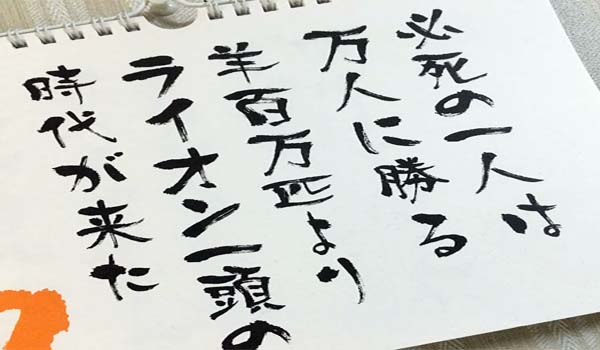 必死の一人は
万人に勝る
羊百万匹より
ライオン一頭の
時代が来た